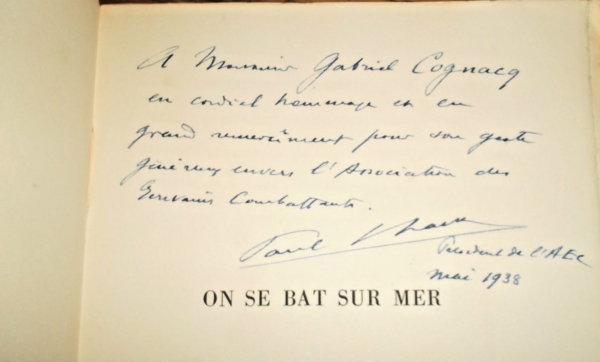 A Monsieur Gabriel Cognacq
en cordial hommage et en
grand remerciement pour son geste
généreux envers l'Association des
Ecrivains Combattants.
Paul Chack
Président de l'AEC
mai 1938
ON SE BAT SUR MER